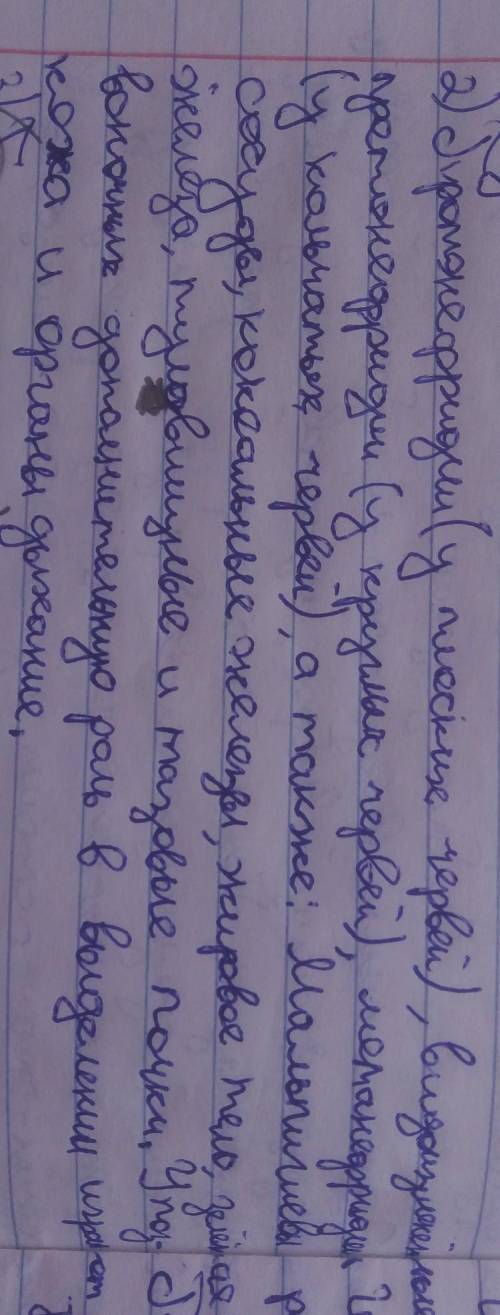 2) Протонефридии (у плоских червей), видоизменённые
протонефридии (у круглых червей), метанефридии
(у кольчатых червей), а также: Мальпигиевы
сосуды, коксальные железы, жировое тело, зелёная
железа, туловищные и тазовые почки. У поз-
воночных дополнительную роль в выделении играют
кожа и органы дыхания.
3)